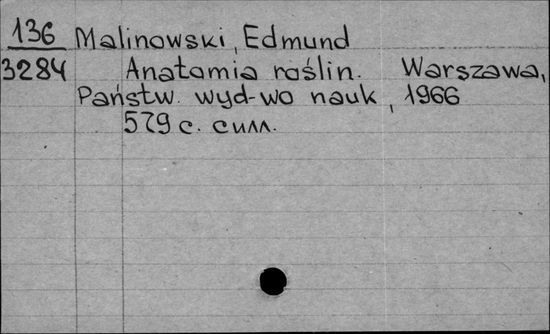 136 Malinowski, Edmund
3284 Anatomia roślin. Warszawa,
Państw. wyd-wo nauk, 1966
579 с. с илл.